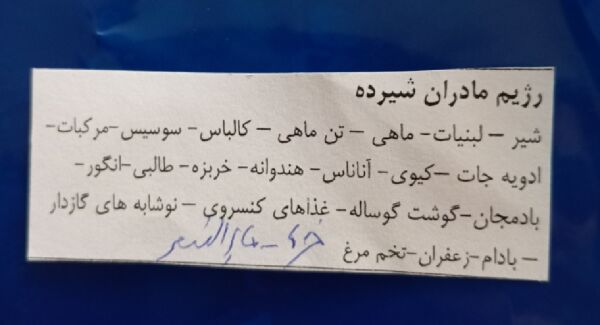 رژیم مادران شیرده
شیر – لبنیات- ماهی – تن ماهی – کالباس- سوسیس-مرکبات-
ادویه جات –کیوی- آناناس- هندوانه- خربزه- طالبی-انگور-
بادمجان-گوشت گوساله- غذاهای کنسروی – نوشابه های گازدار
– بادام-زعفران-تخم مرغ خرما - ماءالشعیر